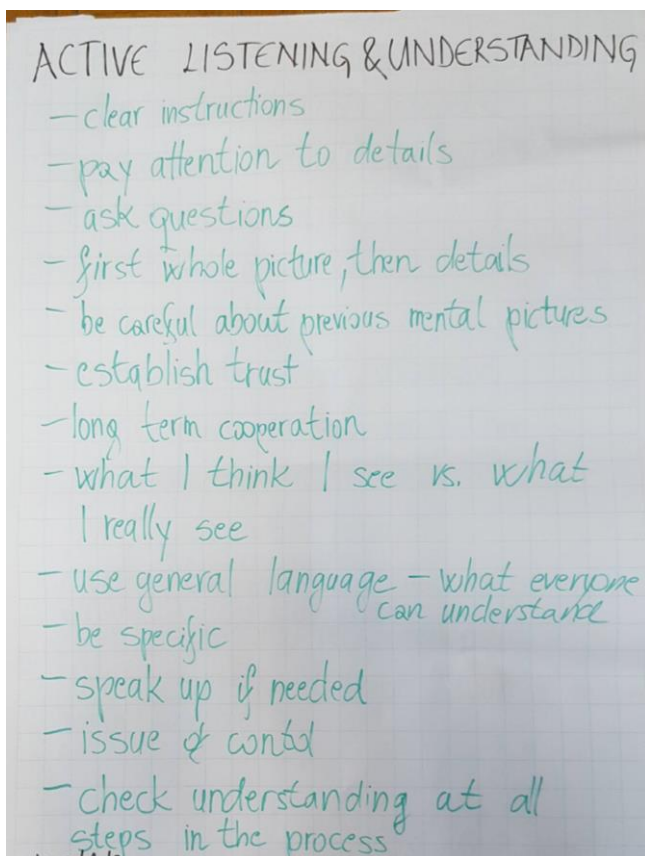 ACTIVE LISTENING & UNDERSTANDING
- clear instructions
- pay attention to details
- ask questions
- first whole picture, then details
- be careful about previous mental pictures
- establish trust
- long term cooperation
- what I think I see vs. what
I really see
- use general language - what everyone
can understand
- be specific
- speak up if needed
- issue of contol
- check understanding at all
steps in the process